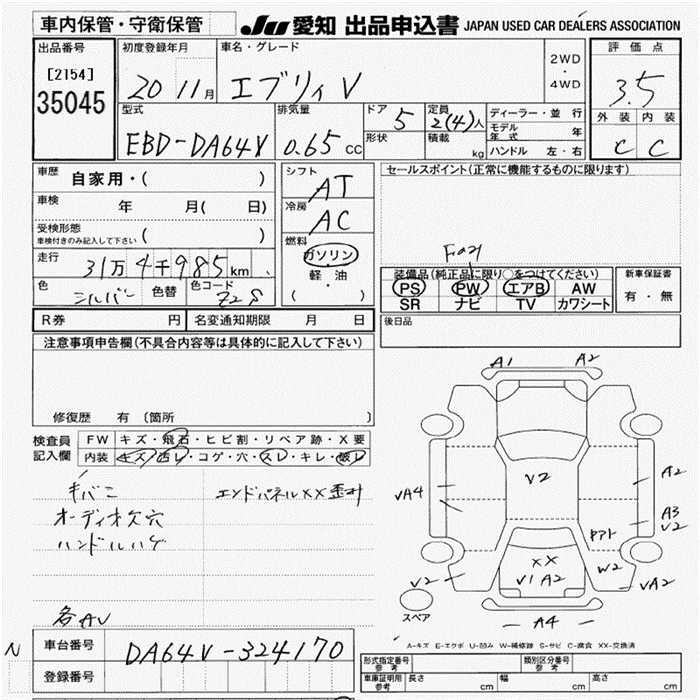 車内保管・守衛保管
JU 愛知 出品申込書 JAPAN USED CAR DEALERS ASSOCIATION
出品番号
[2154]
35045
初度登録年月
20 11月
車名・グレード
エブリィ V
2WD
・
4WD
評価点
3.5
外装 内装
C C
型式
EBD-DA64V
排気量
0.65 CC
ドア 5
形状
定員 2(4)人
積載 kg
ディーラー・並行
モデル年式 年
ハンドル 左・右
車歴 自家用・( )
車検 年 月( 日)
受検形態
車検付きのみ記入して下さい ( )
走行 31万4千985km
色 シルバー 色替 色コード Z2S
シフト AT
冷房 AC
燃料 ガソリン
軽・油
( )
セールスポイント(正常に機能するものに限ります)
装備品(純正品に限り○をつけてください)
PS PW エアB AW
SR ナビ TV カワシート
新車保証書
有・無
R券 円 名変通知期限 月 日
後日品
注意事項申告欄(不具合内容等は具体的に記入して下さい)
修復歴 有 〔箇所 〕
検査員
記入欄
FW キズ・飛石・ヒビ割・リペア跡・X要
内装 キズ・汚レ・コゲ・穴・スレ・キレ・破レ
キバコ
オーディオ欠穴
ハンドルハゲ
エンドパネルXX歪み
各AU
A1 A2
V2
VA4
A2
A3
V2
W2
XX
V1 A2
V2
VA2
A4
スペア
A-キズ E-エクボ U-凹み W-補修跡 S-サビ C-腐食 XX-交換済
N
車台番号 DA64V-324170
登録番号
形式指定番号
参考
類別区分番号
参考
車庫証明用
参考
長さ cm 幅 cm 高さ cm